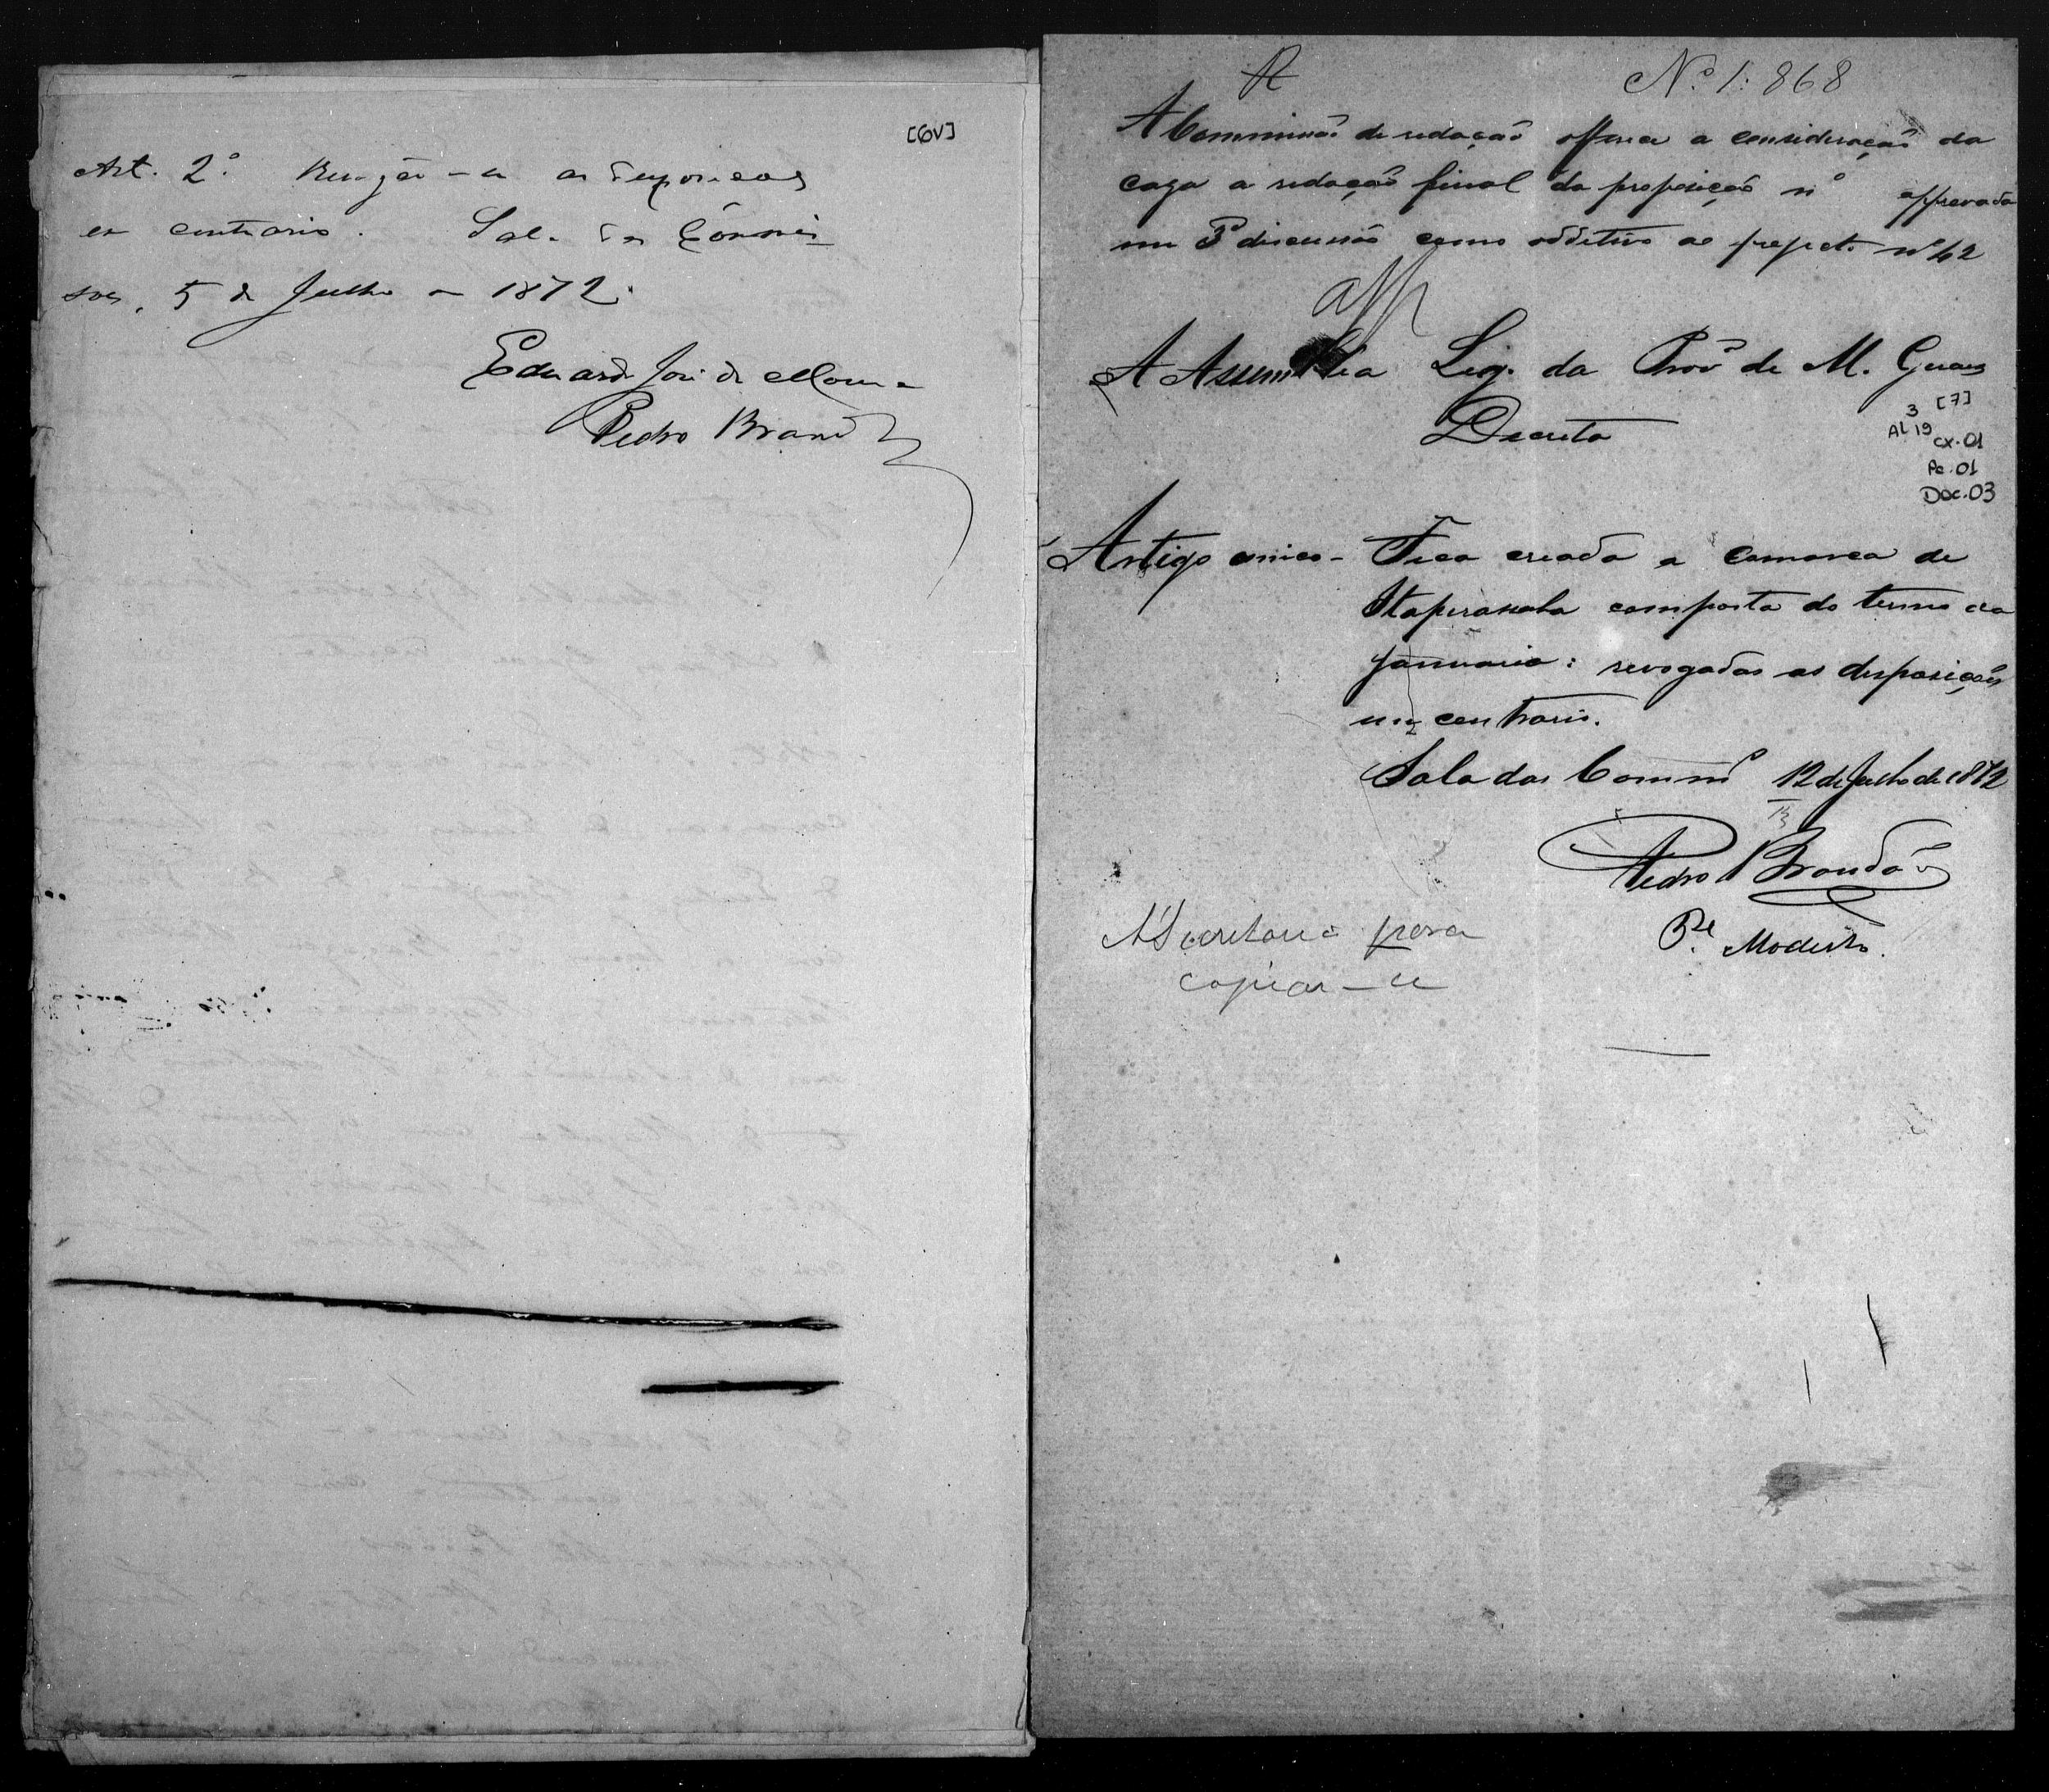 [6V]
Art. 2º. Revogão-se as disposições
em contrario. Sala das Commis
sões, 5 de Julho de 1872.
Eduardo José de Moura
Pedro Brandão
R
Nº 1:868
A Commissão de redacção offerece a consideração da
caza a redacção final da proposição nº approvada
em 3ª discussão como additivo ao project. nº 42
app
A Assemblea Leg. da Provª de M. Geraes
Decreta
[7]
3
AL 19
cx. 01
Pc. 01
Doc. 03
Artigo unico - Fica creada a comarca de
Itapirassaba composta do termo da
Januaria: revogadas as disposições
em contrario.
Sala das Comm 12 de Julho de 1872
Pedro Brandão
Pe. Modesto.
A' Secretaria para
copiar-se